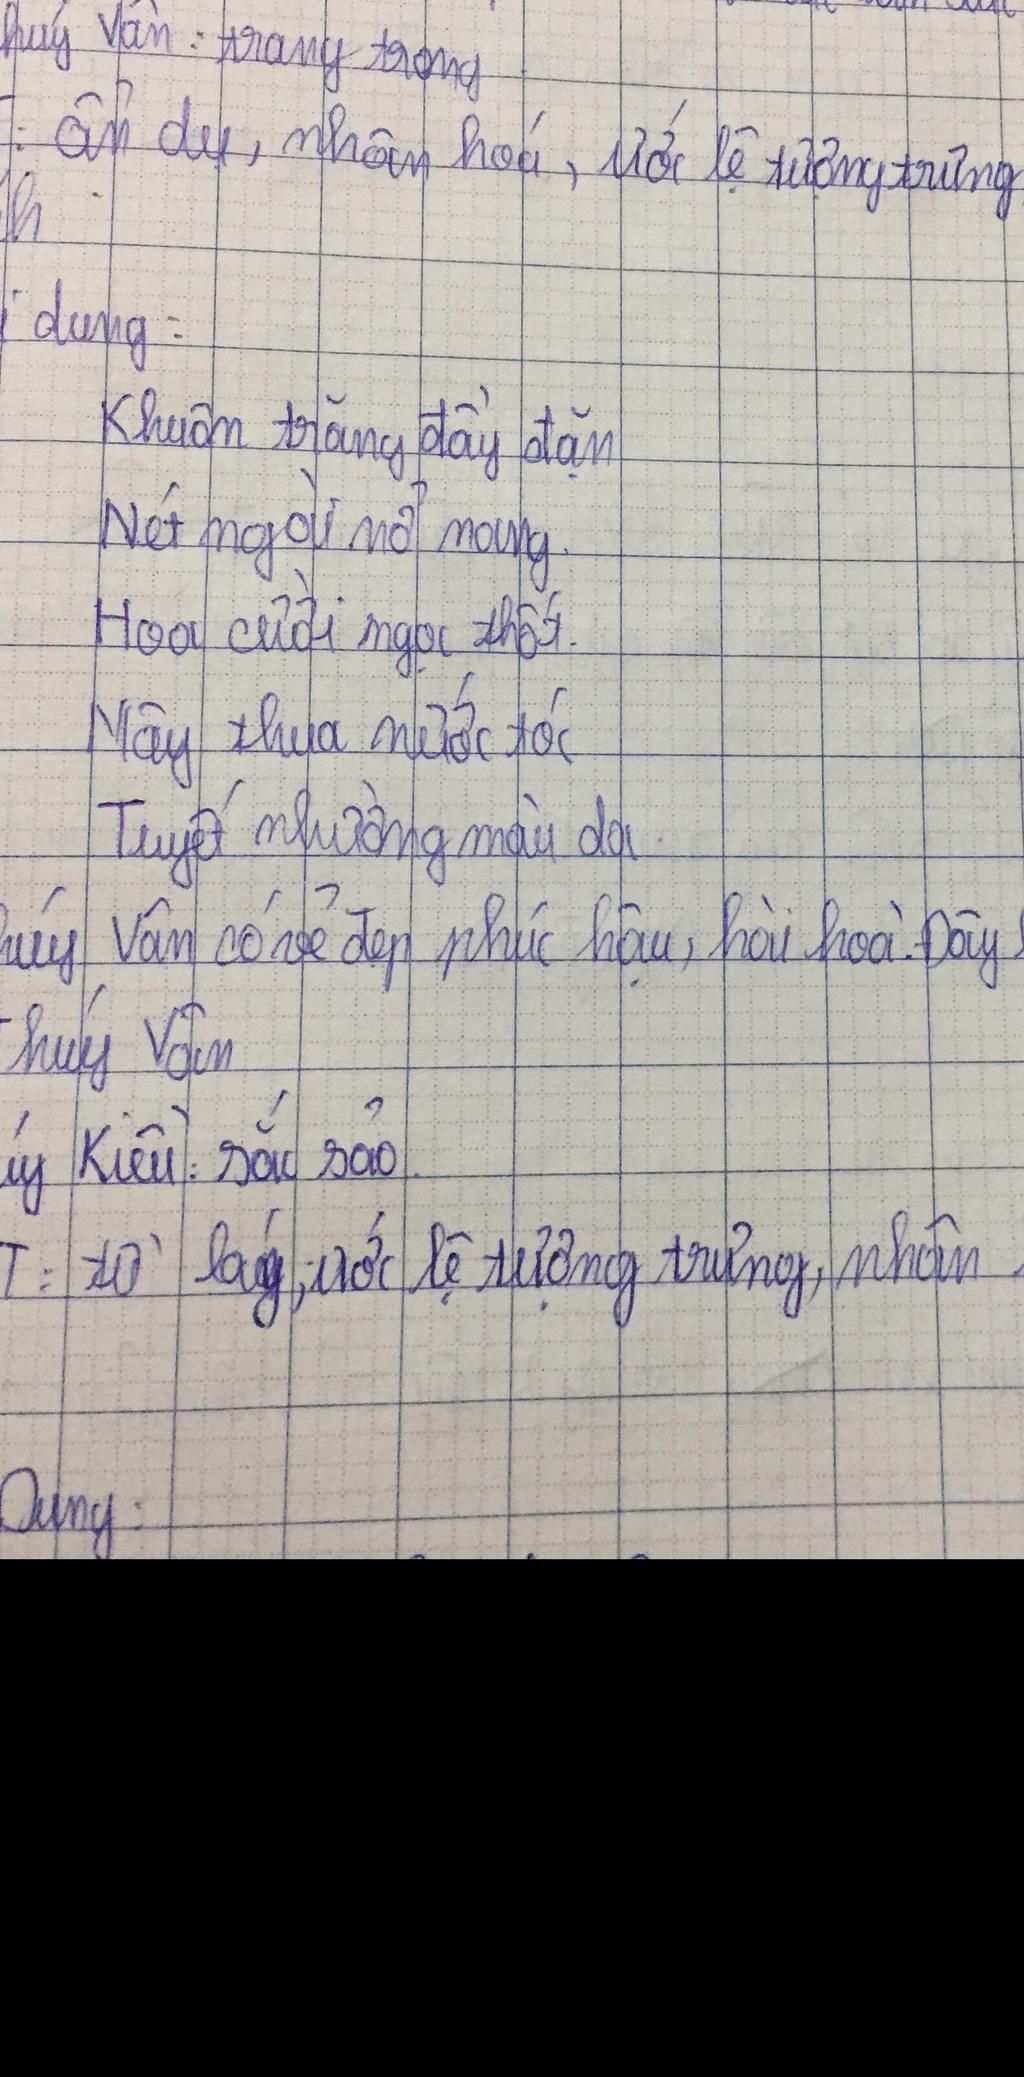 huý Vân: trang trọng
: ẩn dụ, nhân hoá, ước lệ tượng trưng
h
dung:
Khuôn trăng đầy đặn
Nét ngài nở nang.
Hoa cười ngọc thốt.
Mây thua nước tóc
Tuyết nhường màu da.
huý Vân có vẻ đẹp phúc hậu, hài hoà. Đây
Thuý Vân
uý Kiều: sắc sảo.
T: từ láy, ước lệ tượng trưng, nhân
Dung: